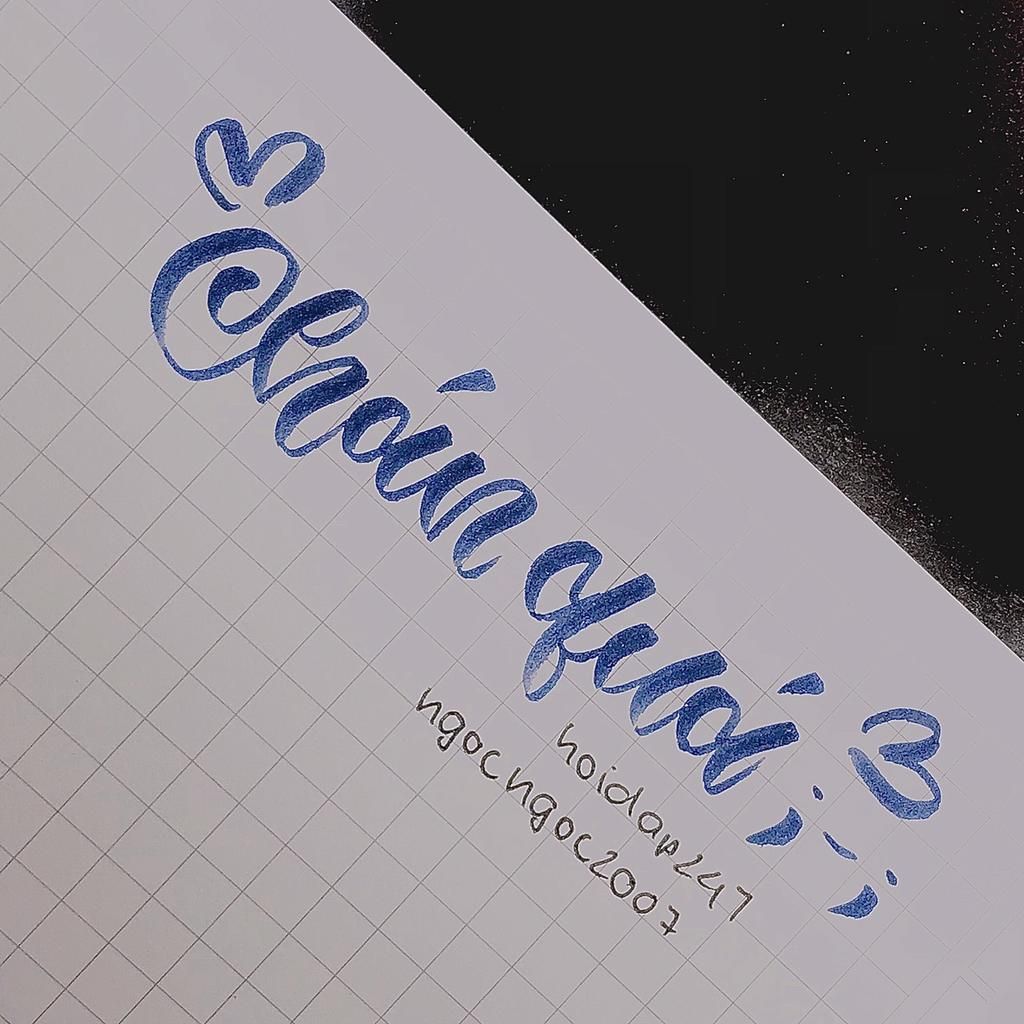 Chán quá ;-;
hoidap247
ngocngoc2007